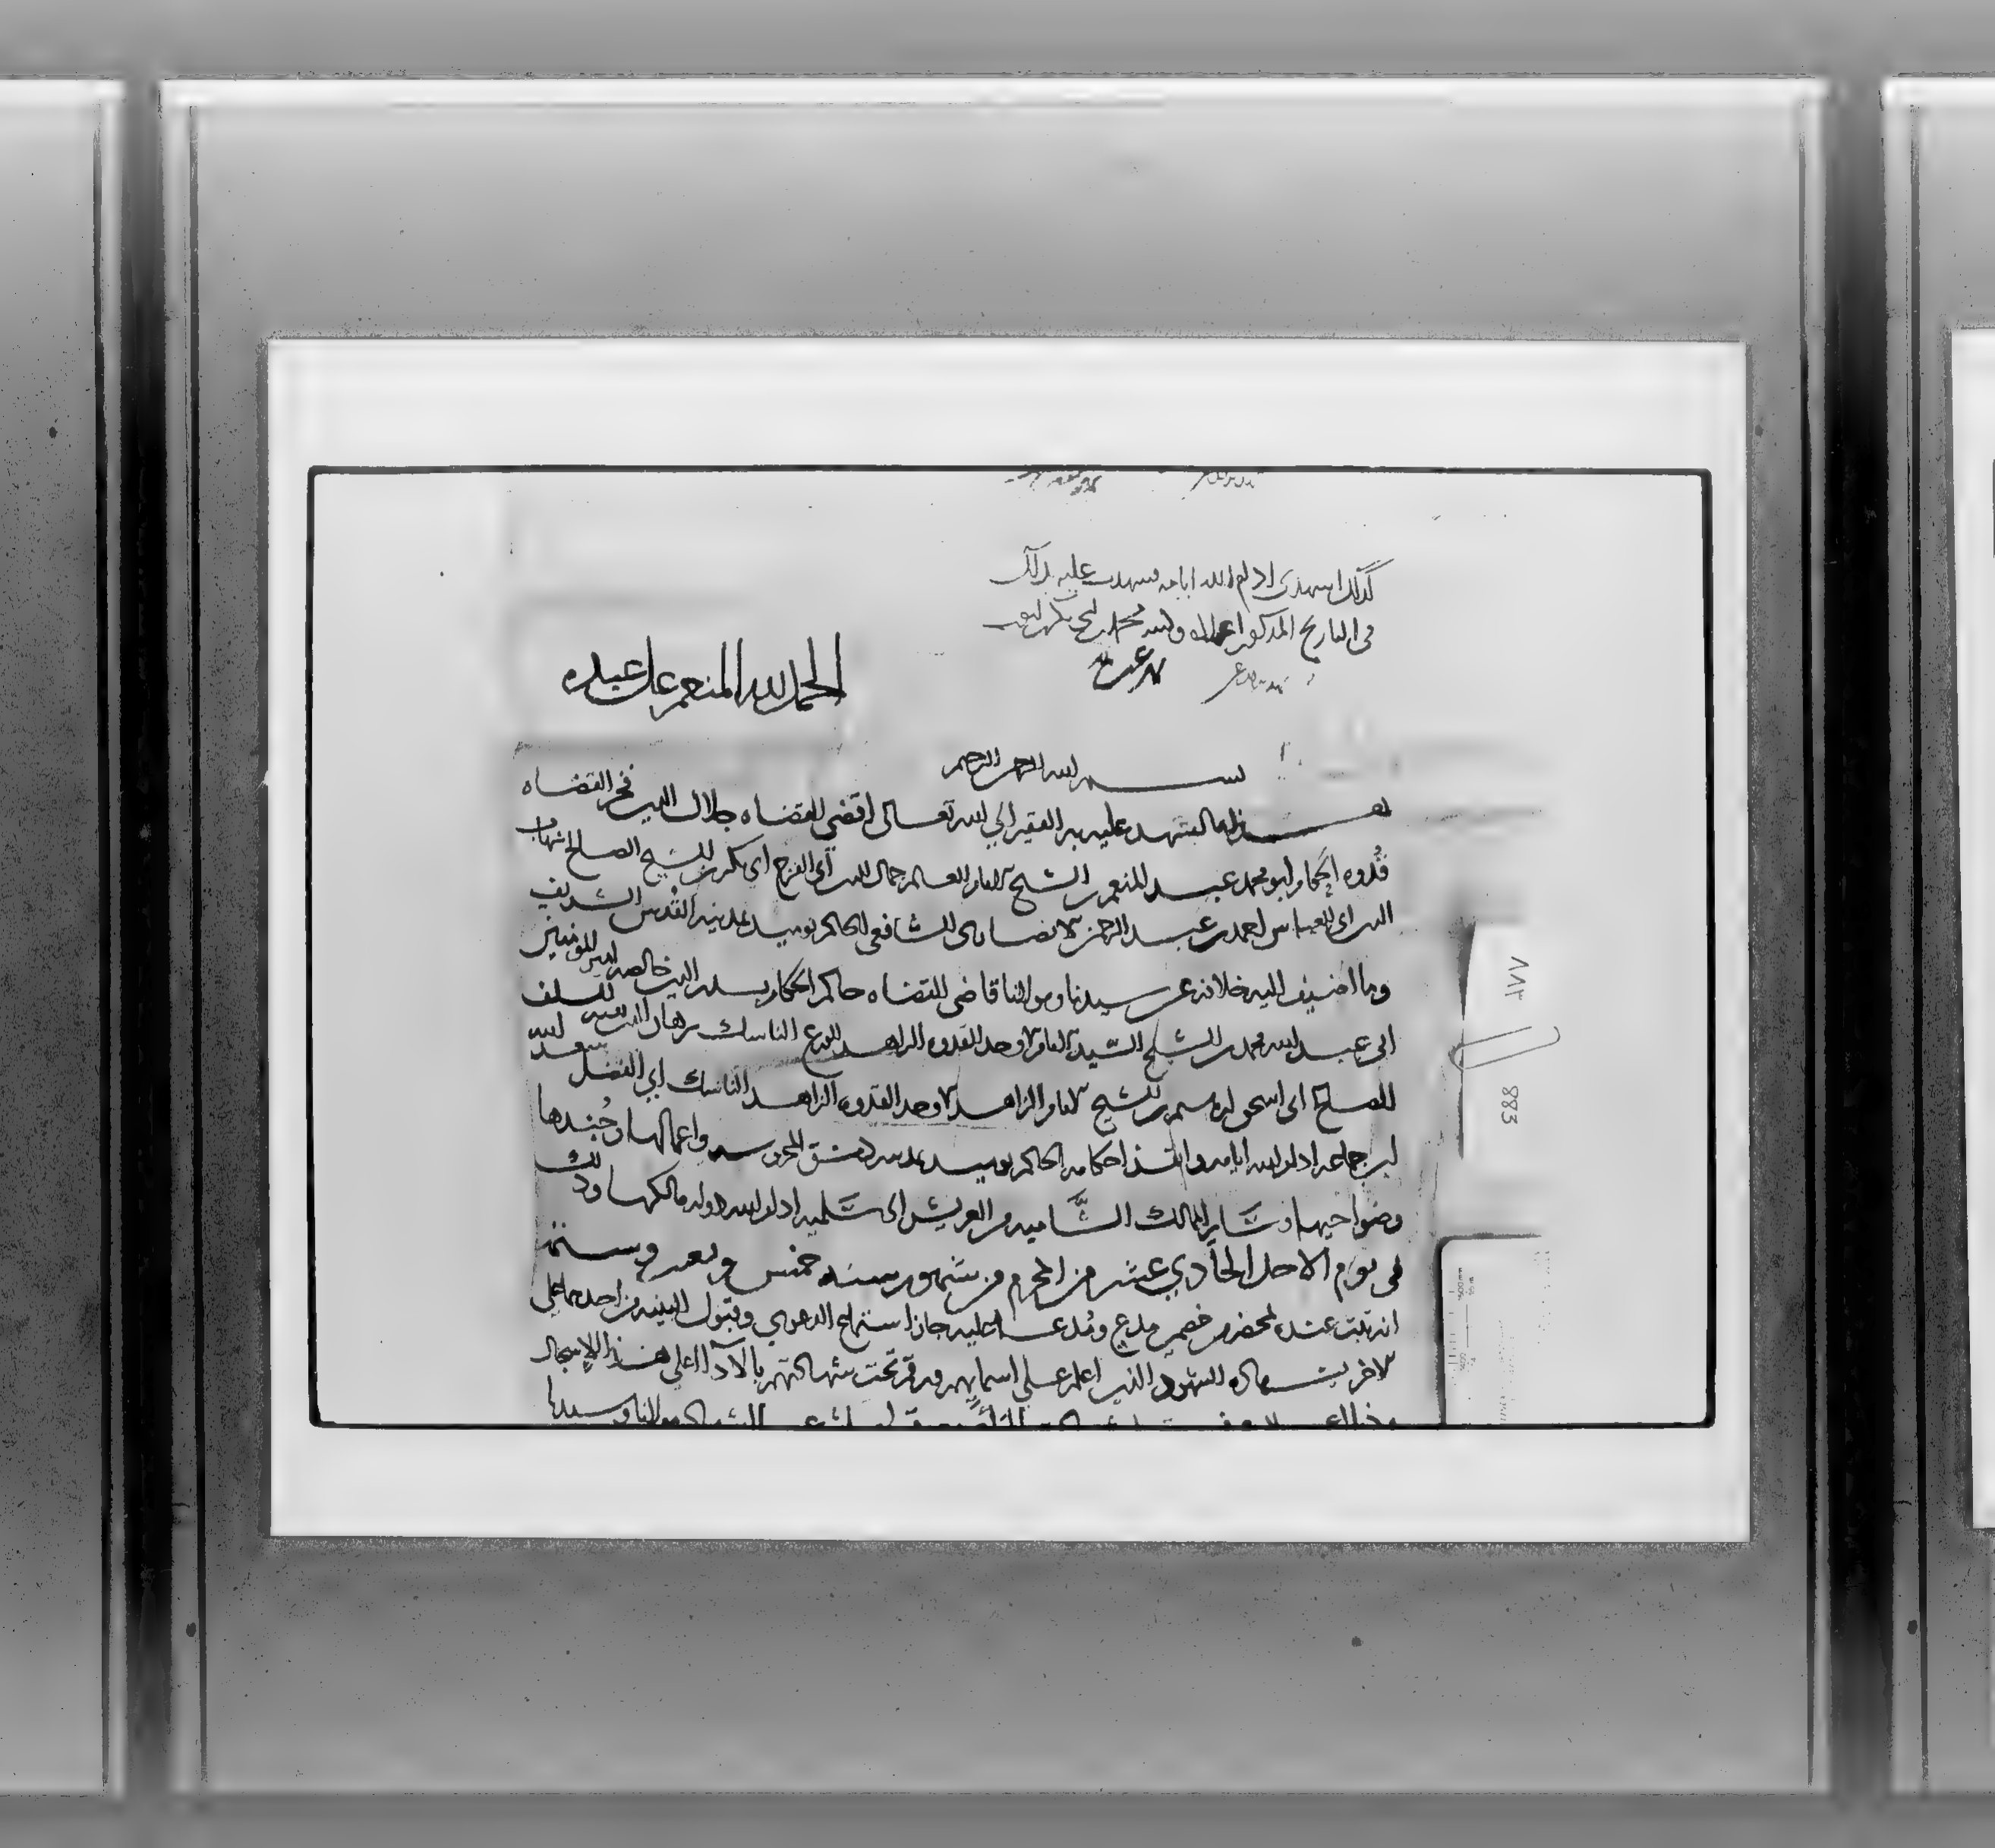 كذلك اشهدني ادام الله ايامه فشهدت عليه بذلك
في التاريخ المذكور اعلاه وكتبه محمد بن ابي بكر بن
الحمد لله المنعم على عبده
بسم الله الرحمن الرحيم
هذا ما اشهد عليه به الفقير الى الله تعالى اقضى القضاه جلال الدين فخر القضاه
قدوه الحكام ابو محمد عبد المنعم بن الشيخ الامام العالم جمال الدين ابي الفرج ابي بكر بن الشيخ الصالح شهاب
الدين ابي العباس احمد بن عبد الرحمن الانصاري الشافعي الحاكم يوميذ بمدينه القدس الشريف
وما اضيف اليه خلافه عن سيدنا ومولانا قاضي القضاه حاكم الحكام بدر الدين خالصه امير المومنين
ابي عبد الله محمد بن الشيخ السيد الامام الاوحد القدوه الزاهد الورع الناسك برهان الدين بقيه السلف
الصالح ابي اسحق ابرهيم بن الشيخ الامام الزاهد الاوحد القدوه الزاهد الناسك ابي الفضل سعد الله
ابن جماعه ادام الله ايامه وانفذ احكامه الحاكم يوميذ بمدينه دمشق المحروسه واعمالها وجندها
وضواحيها وساير الممالك الشاميه من العريش الى سلميه ادام الله دوله مالكها وذلك
في يوم الاحد الحادي عشر من المحرم من شهور سنه خمس وتسعين وستمايه
انه ثبت عنده بمحضر من خصم مدع ومدعا عليه جاز استماع الدعوي وقبول البينه من احدهما على
الاخر بشهاده الشهود الذين اعلم على اسمايهم ورقم تحت شهادتهم بالادا اعلى هذا الاسجال
٨٨٣
883